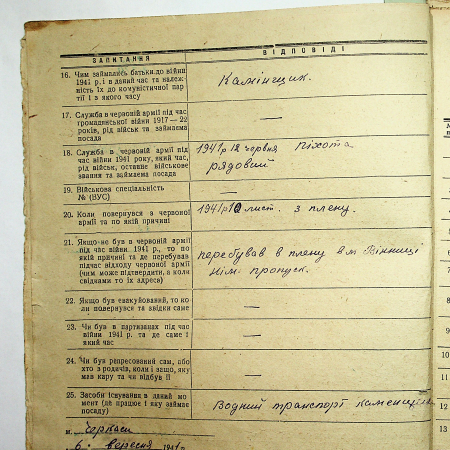 ЗАПИТАННЯ ВІДПОВІДІ
16. Чим займались батьки до війни
1941 р. і в даний час та належ-
ність їх до комуністичної пар-
тії і з якого часу
Камінщик.
17. Служба в червоній армії під час
громадянської війни 1917—22
років, рід військ та займаема
посада
—
18. Служба в червоній армії під
час війни 1941 року, який час,
рід військ, останнє військове
звання та займаема посада
1941р 12 червня піхота
рядовий
19. Військова спеціальність
№ (ВУС)
—
20. Коли повернувся з червоної
армії та по якій причині
1941р 10 лист. з плену.
21. Якщо не був в червоній армії
під час війни 1941 р. то по
якій причині та де перебував
підчас відходу червоної армії
(чим може підтвердити, а коли
свідками то їх адреса)
перебував в плену в м Вінниці
Нім: пропуск.
22. Якщо був евакуйований, то ко
ли повернувся та звідки саме
—
23. Чи був в партизанах під час
війни 1941 р. та де саме і
який час
—
24. Чи був репресований сам, або
хто з родичів, коли і защо, яку
мав кару та чи відбув її
—
25. Засоби існування в даний мо
мент (де працює і яку займає
посаду)
Водний транспорт каменщик
м. Черкаси
6. вересня